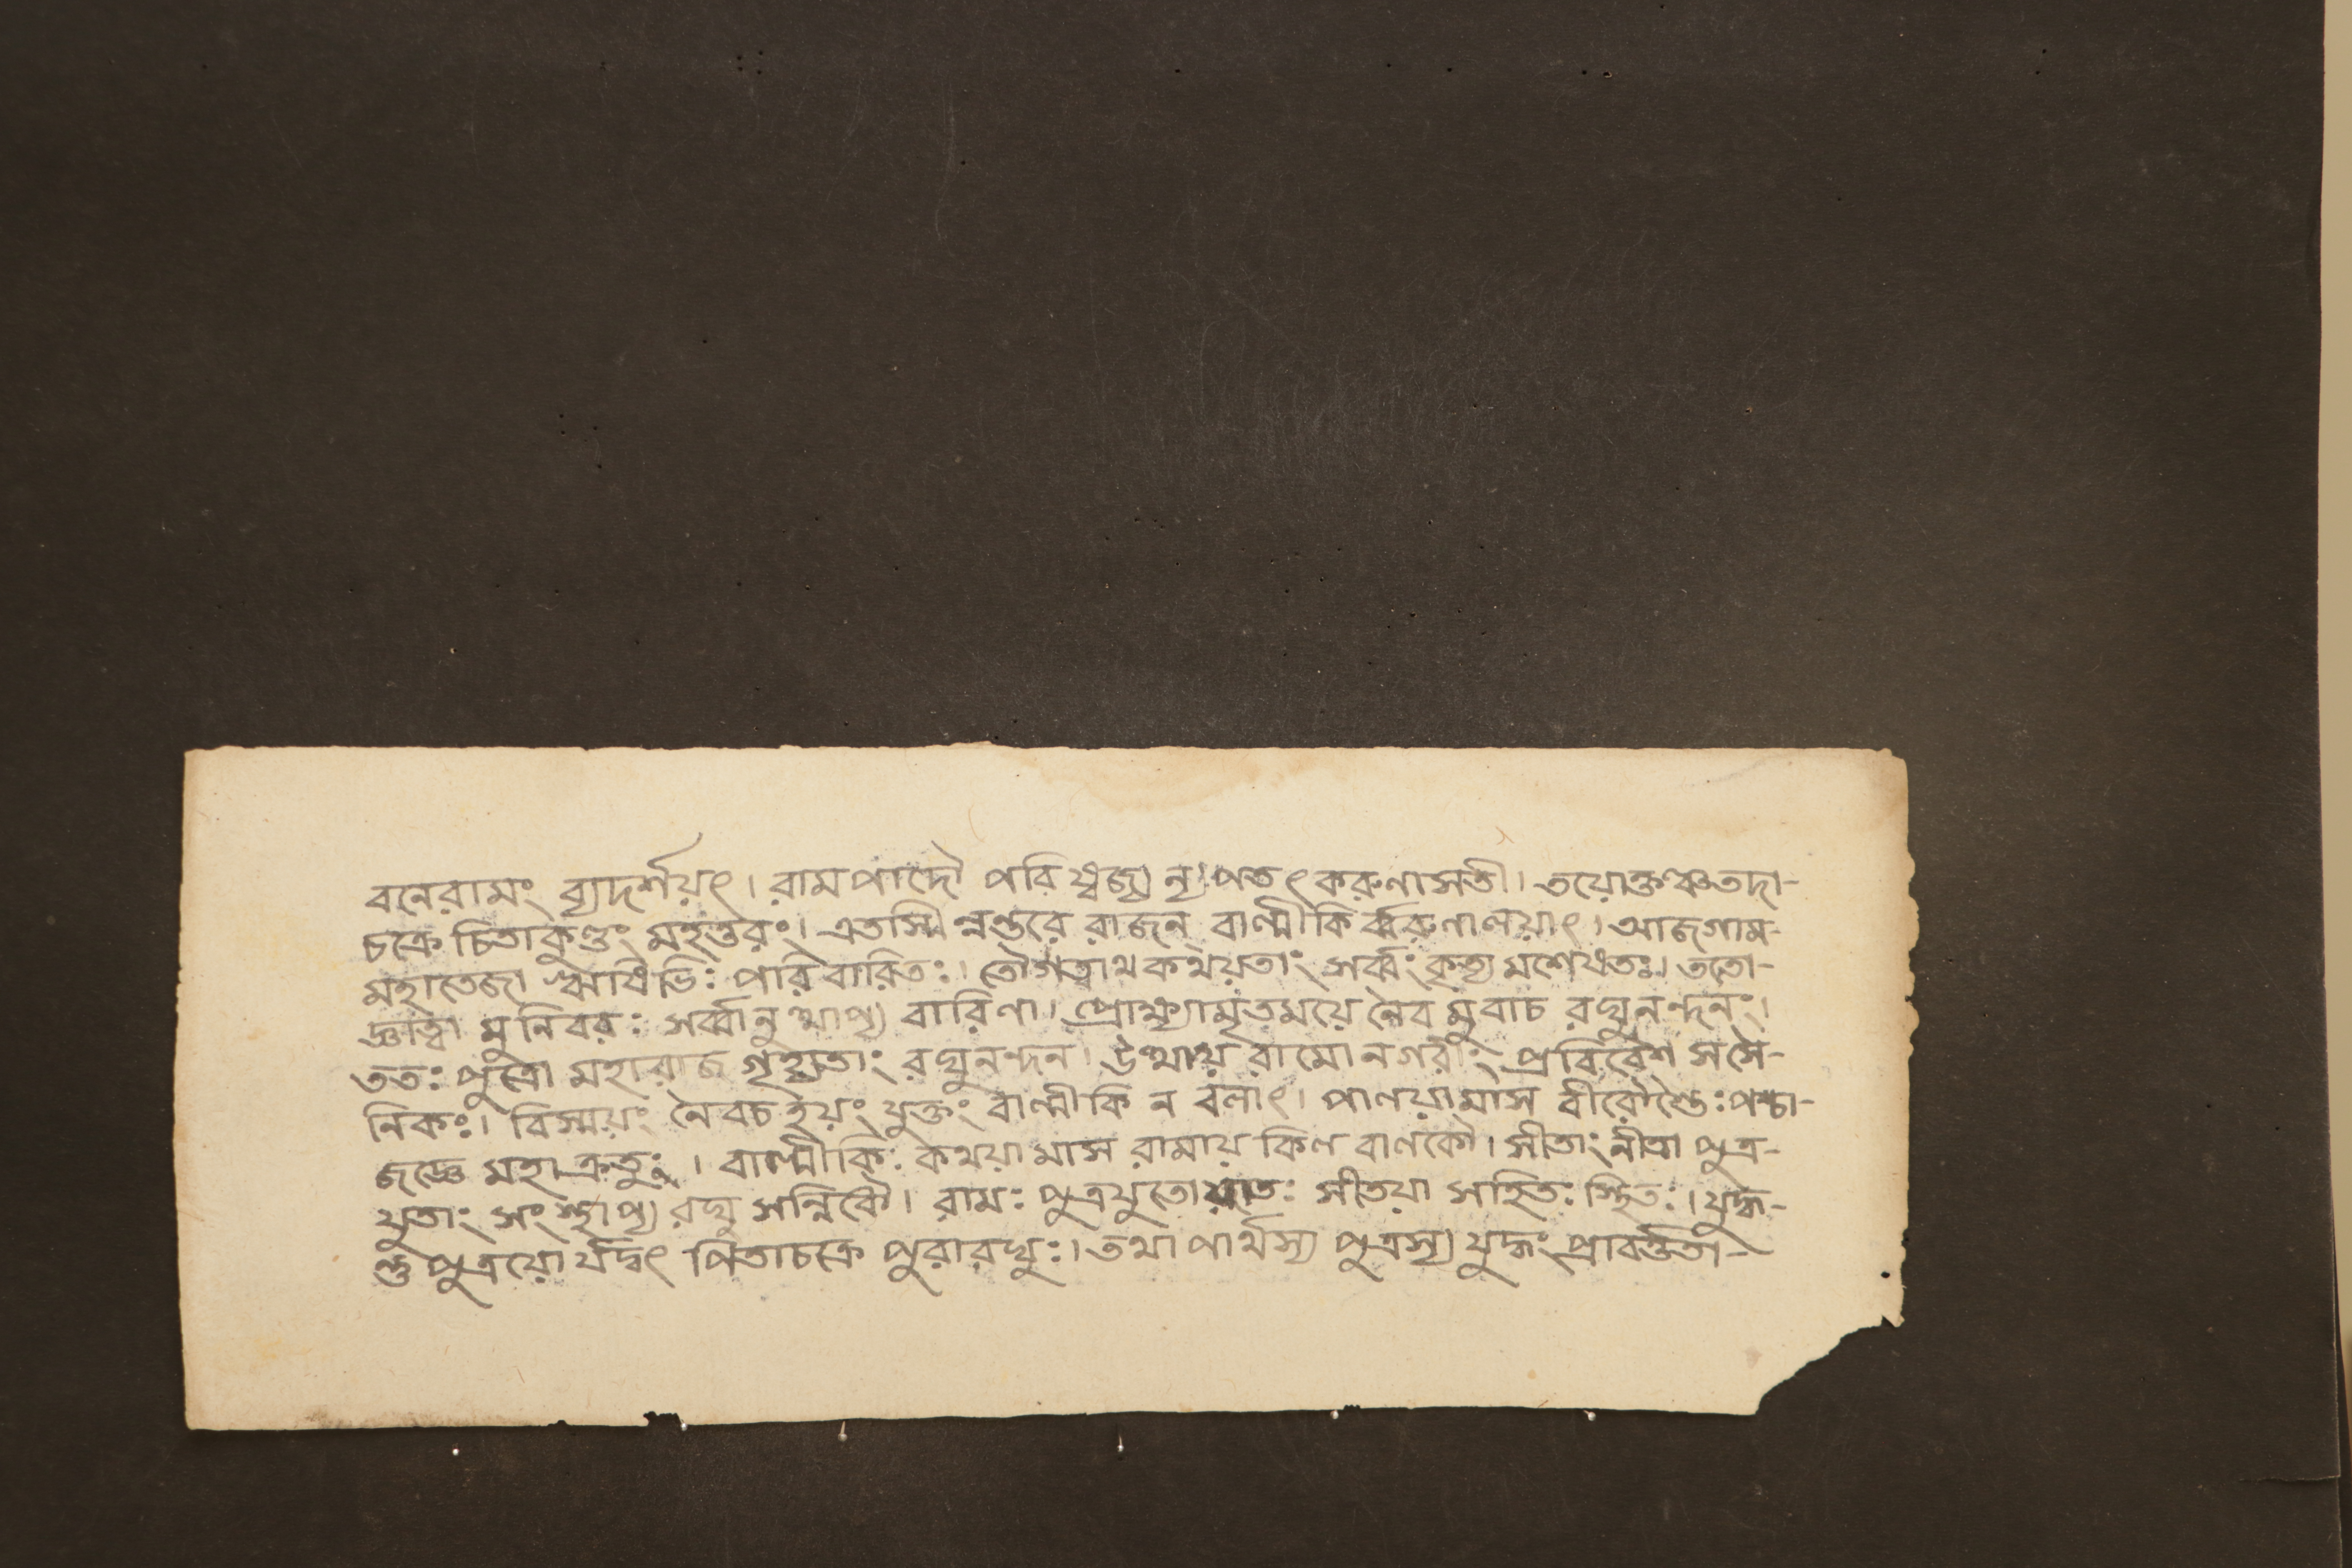 বনেরামং ব্যদর্শয়ৎ। রামপাদৌ পরিষ্বজ্য ন্যপতৎ করুণাসতী। তয়োক্তঞ্চতদা-
চক্রে চিতাকুণ্ডং মহত্তরং। এতস্মিন্নন্তরে রাজন বাল্মীকি র্ব্বরুণালয়াৎ। আজগাম-
মহাতেজা ঋষিভিঃ পরিবারিতঃ। তৌগত্বাথকথয়তাং সর্ব্বং কৃত্য মশেষতঃ। ততো-
জ্ঞাত্বা মুনিবরঃ সর্ব্বানুত্থাপ্য বারিণা। প্রোক্ষ্যামৃতময়ে নৈব মুবাচ রঘুনন্দনং।
ততঃ পুত্রৌ মহারাজ গৃহ্যতাং রঘুনন্দন। উত্থায় রামো নগরীং প্রবিবেশ সসৈ-
নিকঃ। বিস্ময়ং নৈবচ যুক্তং বাল্মীকি ন বলাৎ। পালয়ামাস পশ্চা-
জজ্ঞে মহাক্রতুং। বাল্মীকিঃ কথয়ামাস রামায় কিল বালকৌ। সীতাং নীত্বা পুত্র-
যুতাং সংস্থাপ্য রঘু সন্নিধৌ। রামঃ পুত্রযুতো সীতয়া সহিতঃ স্থিতঃ। যুদ্ধ-
ন্তু পুত্রয়ো র্যদ্বৎ পিতাচক্রে পুরারঘুঃ। তথা পার্থস্য পুত্রস্য যুদ্ধং প্রাবর্ত্ততা-